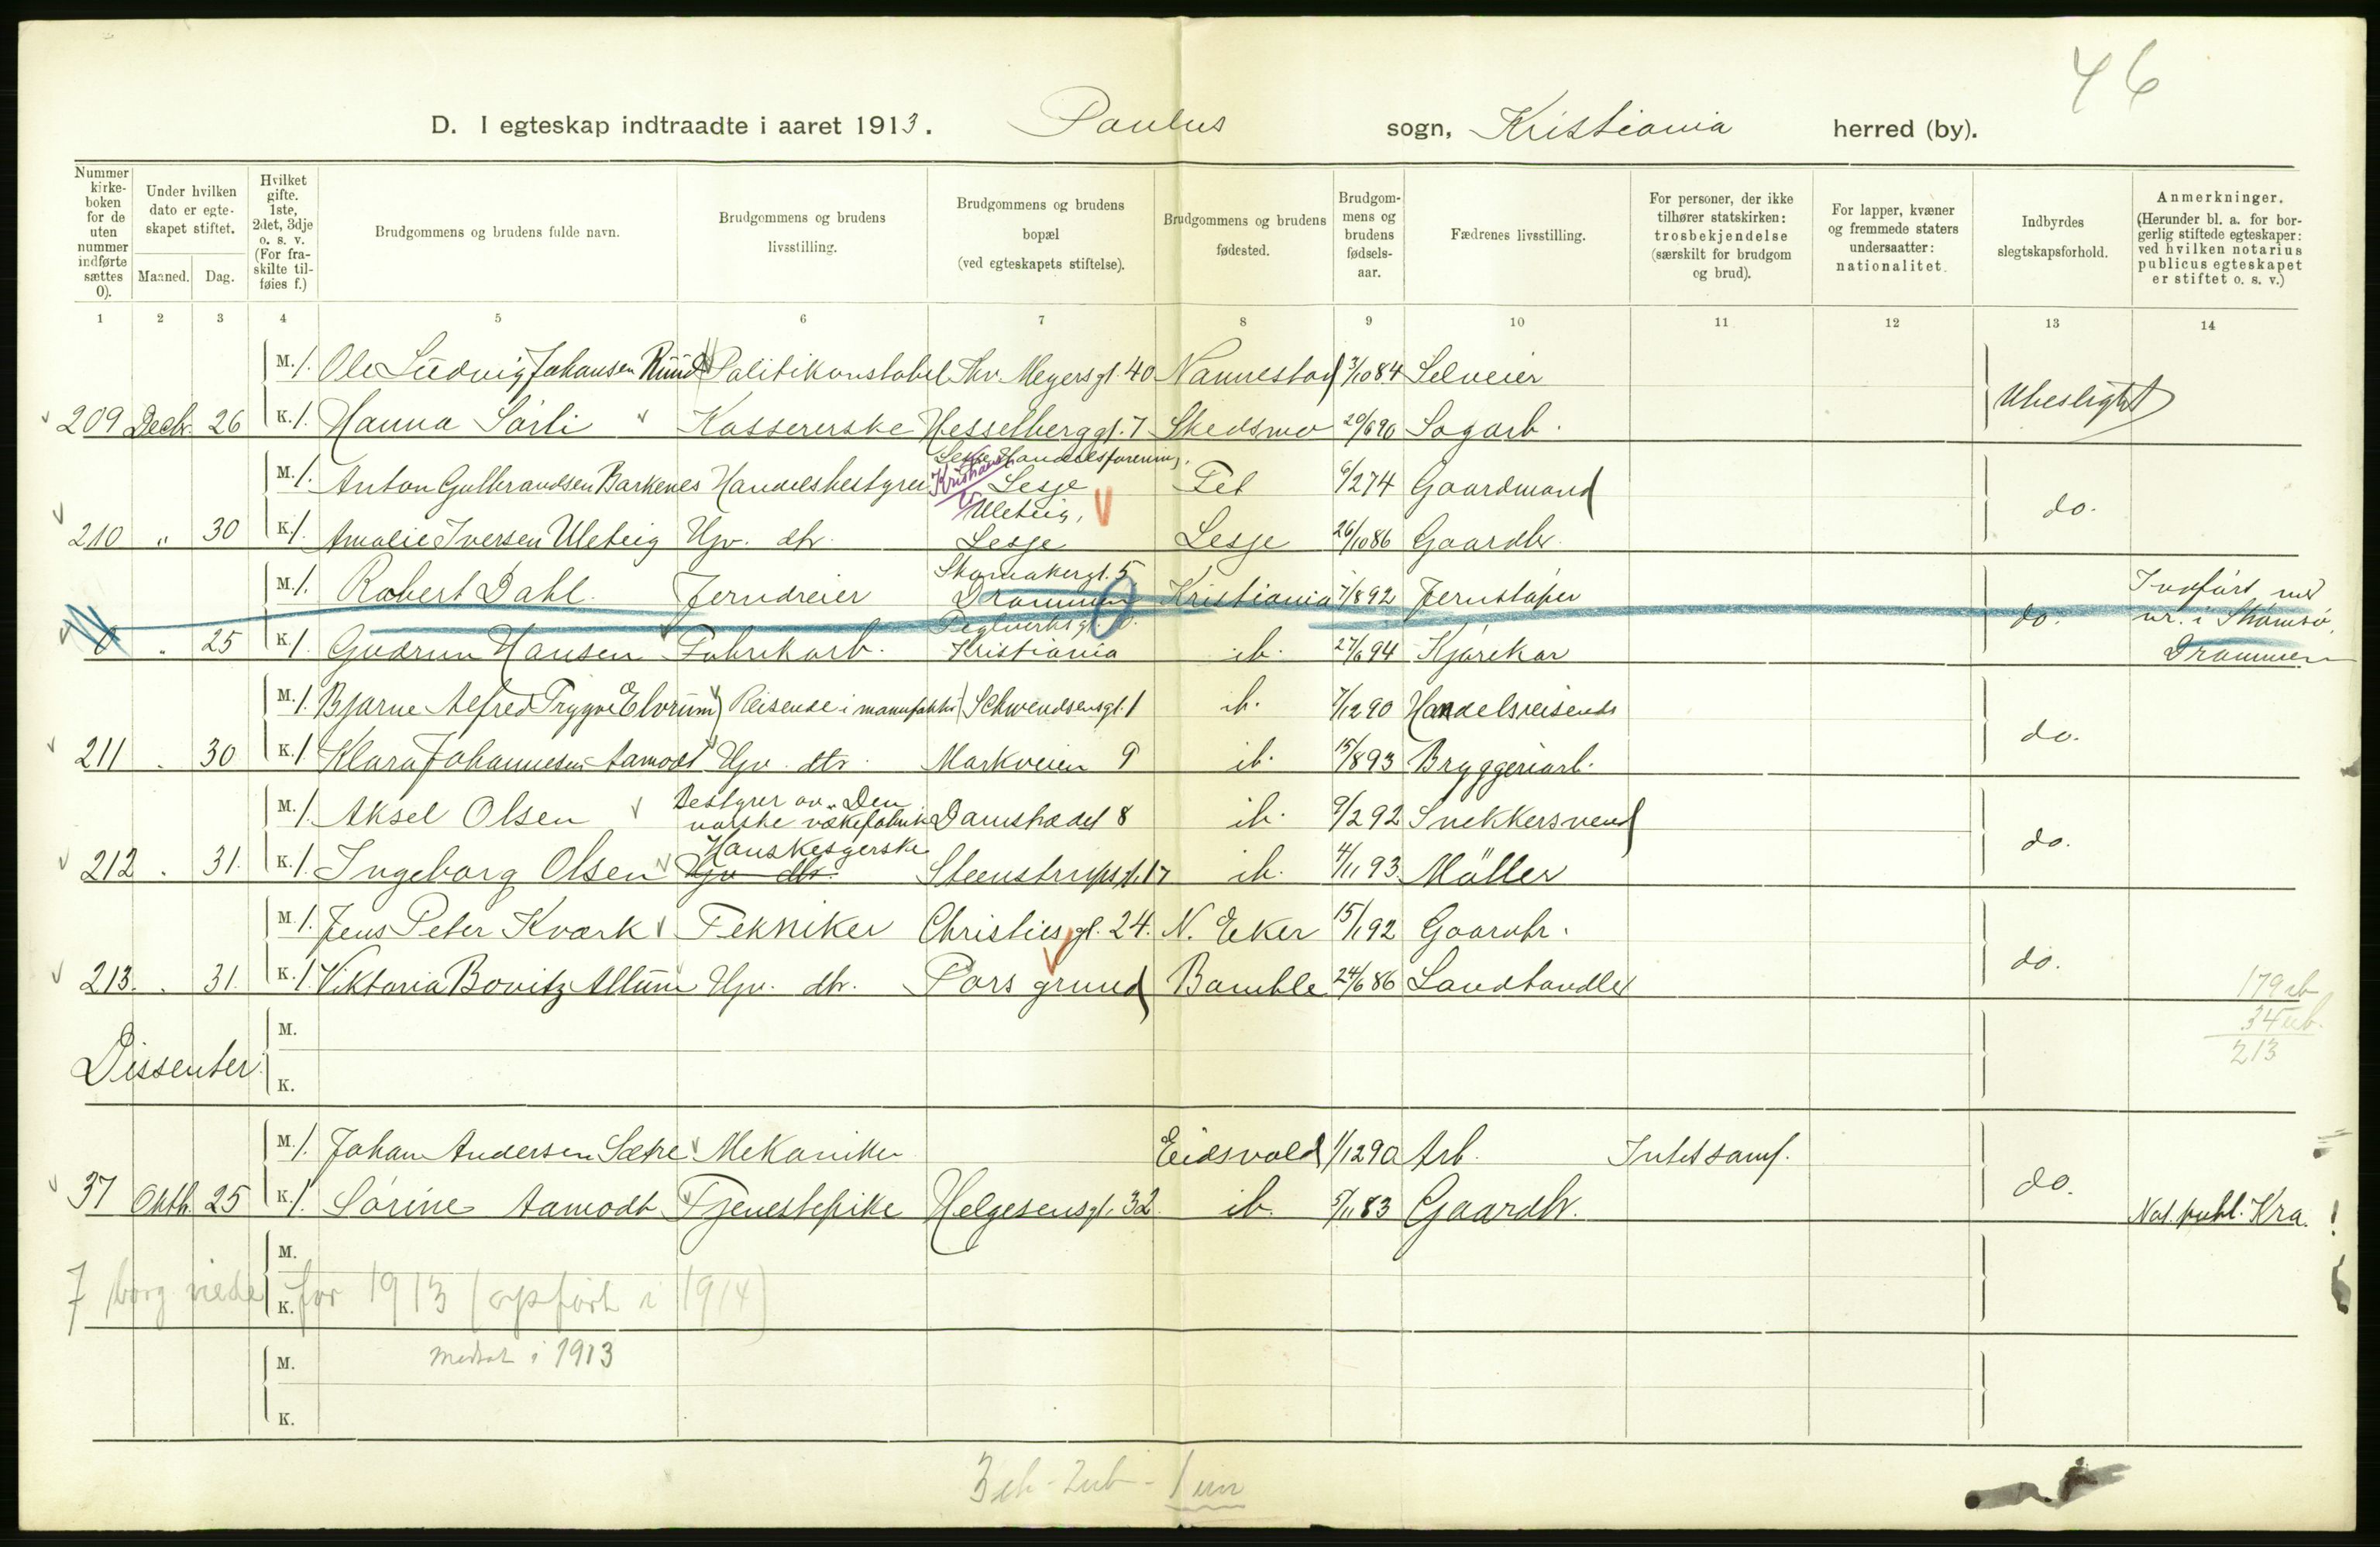 46
D. I egteskap indtraadte i aaret 1913. Paulus sogn, Kristiania herred (by).
Nummer kirkeboken for de uten nummer indførte sættes 0).
Under hvilken dato er egteskapet stiftet.
Maaned. Dag.
Hvilket gifte. 1ste, 2det, 3dje o. s. v. (For fraskilte tilføies f.)
Brudgommens og brudens fulde navn.
Brudgommens og brudens livsstilling.
Brudgommens og brudens bopæl (ved egteskapets stiftelse).
Brudgommens og brudens fødested.
Brudgommens og brudens fødselsaar.
Fædrenes livsstilling.
For personer, der ikke tilhører statskirken: trosbekjendelse (særskilt for brudgom og brud).
For lapper, kvæner og fremmede staters undersaatter: nationalitet.
Indbyrdes slegtskapsforhold.
Anmerkninger. (Herunder bl. a. for borgerlig stiftede egteskaper: ved hvilken notarius publicus egteskapet er stiftet o. s. v.)
1 2 3 4 5 6 7 8 9 10 11 12 13 14
M. 1. Ole Ludvig Johansen Ruud Politikonstabel Thv. Meyersgt. 40 Nannestad 3/10 84 Selveier
209 Decbr. 26 K. 1. Hanna Sørli Kassererske Hesselberggt. 7 Skedsmo 20/6 90 Sagarb. Ubeslegtet
Lesje Handelsforening,
M. 1. Anton Gulbrandsen Barkenes Handelsbestyrer Kristiania Lesje Fet 6/2 74 Gaardmand
Uleteig,
210 " 30 K. 1. Amalie Iversen Uleteig Hjv. dtr. Lesje Lesje 26/10 86 Gaardbr. do.
Skomakergt. 5
M. 1. Robert Dahl. Jerndreier Drammen Kristiania 7/8 92 Jernstøper Indført med
Teglverksgt.
0 " 25 K. 1. Gudrun Hansen Fabrikarb. Kristiania ib. 27/6 94 Kjørekar do. nr. i Strømsø,
Drammen
M. 1. Bjarne Alfred Trygve Elvrum Reisende i manufaktur Schwendsensgt. 1 ib. 7/12 90 Handelsreisende
211 " 30 K. 1. Klara Johannesen Aamodt Hjv. dtr. Markveien 9 ib. 15/8 93 Bryggeriarb. do.
M. 1. Aksel Olsen Bestyrer av "Den norske vækefabrik Damstrædet 8 ib. 9/2 92 Snekkersvend
Hanskesyerske
212 " 31. K. 1. Ingeborg Olsen Hjv. dtr. Steenstrupsgt. 17 ib. 4/11 93 Møller do.
M. 1. Jens Peter Kværk Tekniker Christiesgt. 24. N. Eker 15/1 92 Gaardbr.
213. " 31. K. 1. Viktoria Bovitz Allum Hjv. dtr. Porsgrund Bamble 24/6 86 Landhandler do.
179 eb
34 ub.
213
M.
Dissenter
K.
M. 1. Johan Andersen Sætre Mekaniker Eidsvold 1/12 90 Arb. Intet samf.
37 Oktb. 25 K. 1. Sørine Aamodt Tjenestepike Helgesensgt. 32. ib. 5/11 83 Gaardbr. do. Not. publ. Kra. !
M.
7 borg viede K. for 1913 (opført i 1914)
M. medtat i 1913
K.
3 eb - 2 ub - 1 um